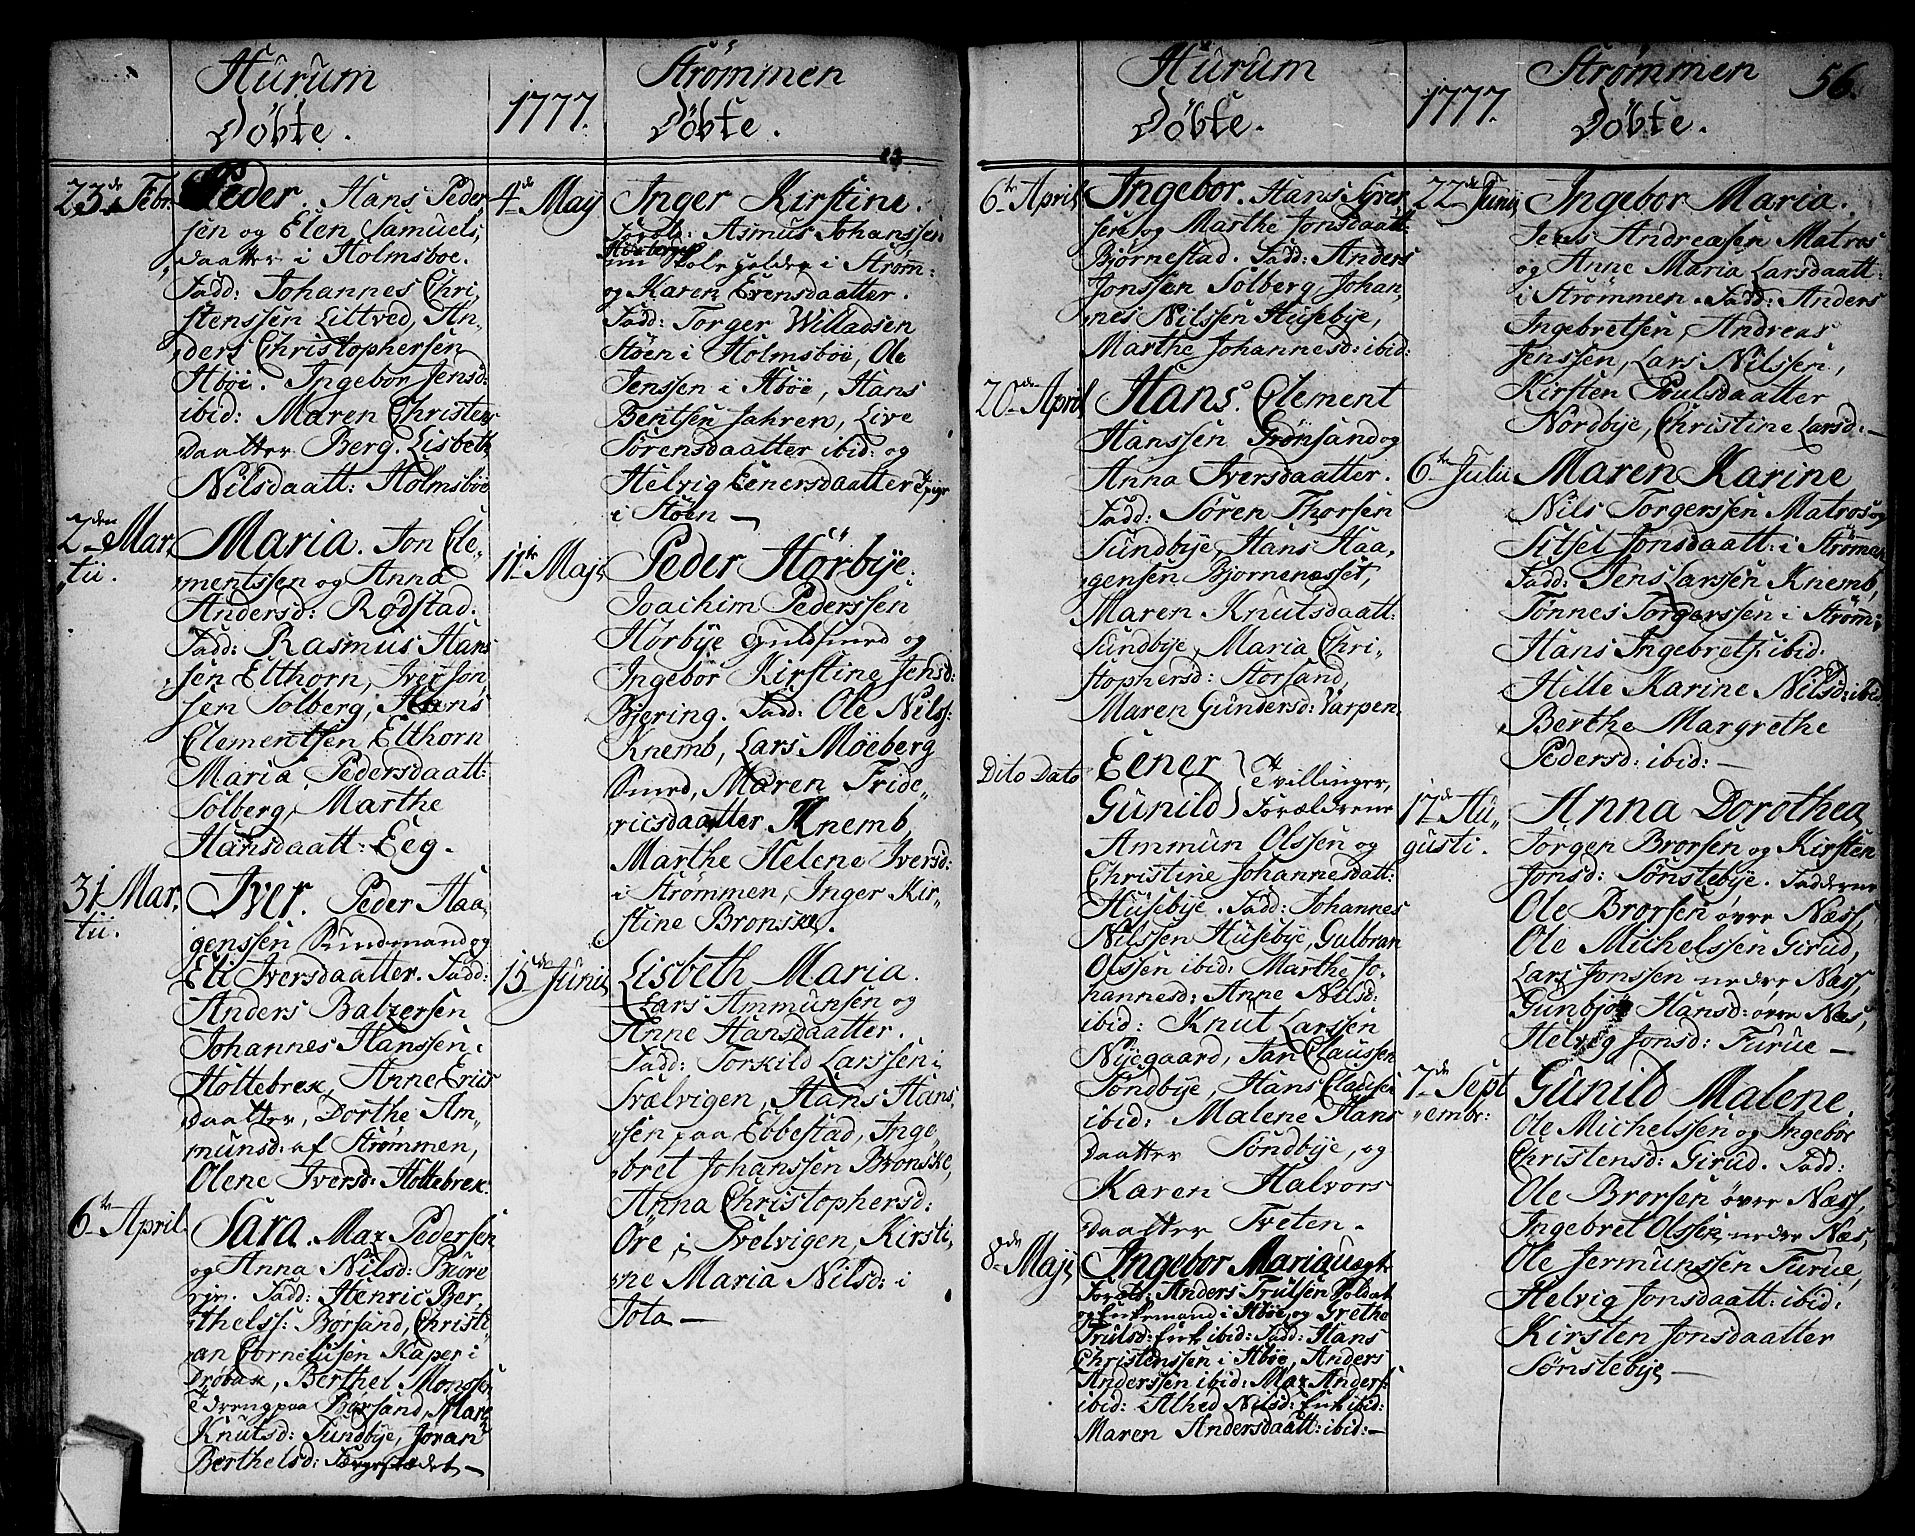 Hurum
Döbte.
1777.
Strømmen
Döbte.
23de Febr.
Peder. Hans Peder
sen og Elen Samuels,
daatter i Holmsboe.
Fadd: Johannes Chri,
stenssen Liltved, An,
ders Christophersen
Aböe. Ingebor Jensd:
ibid: Maren Christens
daatter Berg. Lisbeth
Nilsdaatt: Holmsböe
2den Mar,
tii.
Maria. Jon Cle,
mentssen og Anna
Andersd: Rödstad.
Fadd: Rasmus Hans
sen Elthorn, Iver Jon
sen Solberg, Hans
Clementsen Elthorn
Maria Pedersdaatt:
Solberg, Marthe
Hansdaatt: Eeg.
31 Mar,
tii.
Iver. Peder Haa,
genssen Sundmand og
Eli Iversdaatter. Fadd:
Anders Balzersen
Johannes Hanssen i
Holtebrek, Anne Erics
daatter, Dorthe Am,
munsd: af Strømmen,
Olene Iversd: Holtebrek.
6te April
Sara. Max Pedersen
og Anna Nilsd: Bure
Fadd: Henric Ber,
thelss: Borsand, Christi,
an Cornelusen Kaper i
Dröbak, Berthel Monssen
Dreng paa Borsand, Mare
Knutsd: Sundbye, Joran
Berthelsd: Færgestædet —
4de Maij
Inger Kirstine.
Foræld: Asmus Johanssen
holder i Strøm:
og Karen Evensdaatter.
Fadd: Torger Willadsen
Stöen i Holmsböe, Ole
Jenssen i Aböe, Hans
Bentsen Jahren, Live
Sörensdaatter ibid: og
Helvig Eenersdaatter Pige
i Stöen —
11te Maji
Peder Hörbye.
Joachim Pederssen
Hörbye Guldsmed og
Ingebor Kirstine Jensd:
Bjering. Fadd: Ole Nilss:
Knemb, Lars Möeberg
Smed, Maren Fride,
ricsdaatter Knemb,
Marthe Helene Iversd:
i Strømmen, Inger Kir,
stine Bronske.
15de Junii
Lisbeth Maria.
Lars Ammunsen og
Anne Hansdaatter.
Fadd: Torkild Larssen i
Svælvigen, Hans Hans,
sen paa Eobestad, Inge,
bret Johanssen Bronske,
Anna Christophersd:
Öre i Svelvigen, Kirsti,
ne Maria Nilsd: i
Tota —
Hurum
Döbte.
1777.
Strømmen
Döbte.
56.
6te April
Ingebor. Hans Syver
sen og Marthe Jonsdaatt:
Bjørnestad. Fadd: Anders
Jonssen Solberg, Johan,
nes Nilssen Husebye,
Marthe Johannesd: ibid:
20de April
Hans. Clement
Hanssen Trönsand og
Anna Iversdaatter.
Fadd: Sören Thorsen
Sundbye, Hans Haa,
gensen Bjornenesset,
Maren Knutsdaatt:
Sundbye, Maria Chri,
stophersd: Storsand,
Maren Gundersd: Varpen.
Dito Dato
Eener
Gunild
Tvillinger,
Forældrene
Ammun Olssen og
Christine Johannesdatt:
Husebye. Fadd: Johannes
Nilssen Husebye, Gulbran
Olssen ibid: Marthe Jo,
hannesd: Anne Nilsd:
ibid: Knut Larssen
Nyegaard, Jan Claussen
Söndbye, Hans Clausen
ibid: Malene Hans
daatter Söndbye, og
Karen Halvors
daatter Tveten.
8de Maji
Ingebor Maria uægte
Foræld: Anders Trulsen Soldat
og Enkemand i Aböe, og Grethe
Trulsd: Enk ibid: Fadd: Hans
Christenssen i Aböe, Anders
Anderssen ibid: Max Anders:
ibid: Alhed Nilsd: Enk ibid:
Maren Andersdaatt: ibid: —
22de Junii
Ingebor Maria.
Jens Andreæsen Matros
og Anne Maria Larsdaatt:
i Strømmen. Fadd: Anders
Ingebretsen, Andreas
Jenssen, Lars Nilssen,
Kirsten Poulsdaatter
Nordbye, Christine Larsd: —
6te Julii
Maren Karine
Nils Torgerssen Matros og
Sitsel Jonsdaatt: i Strømm:
Fadd: Jens Larssen Knemb,
Tönnes Torgerssen i Strøm:
Hans Ingebrets: ibid.
Helle Karine Nilsd: ibid
Berthe Margrethe
Pedersd: ibid: —
17de Au,
gusti.
Anna Dorothea
Jörgen Brorsen og Kirsten
Jonsd: Sönstebye. Fadderne
Ole Brorsen övre Næss,
Ole Michelssen Girud,
Lars Jonssen nedre Næss,
Gunbjör Hansd: övre Næs,
Helvig Jonsd: Furue —
7de Sept
embr:
Gunild Malene.
Ole Michelssen og Ingebor
Christensd: Girud. Fadd:
Ole Brorsen övre Næss,
Ingebret Olssen nedre Næs,
Ole Jermunssen Furue,
Helvig Jonsdaatt: ibid:
Kirsten Jonsdaatter
Sönstebye —